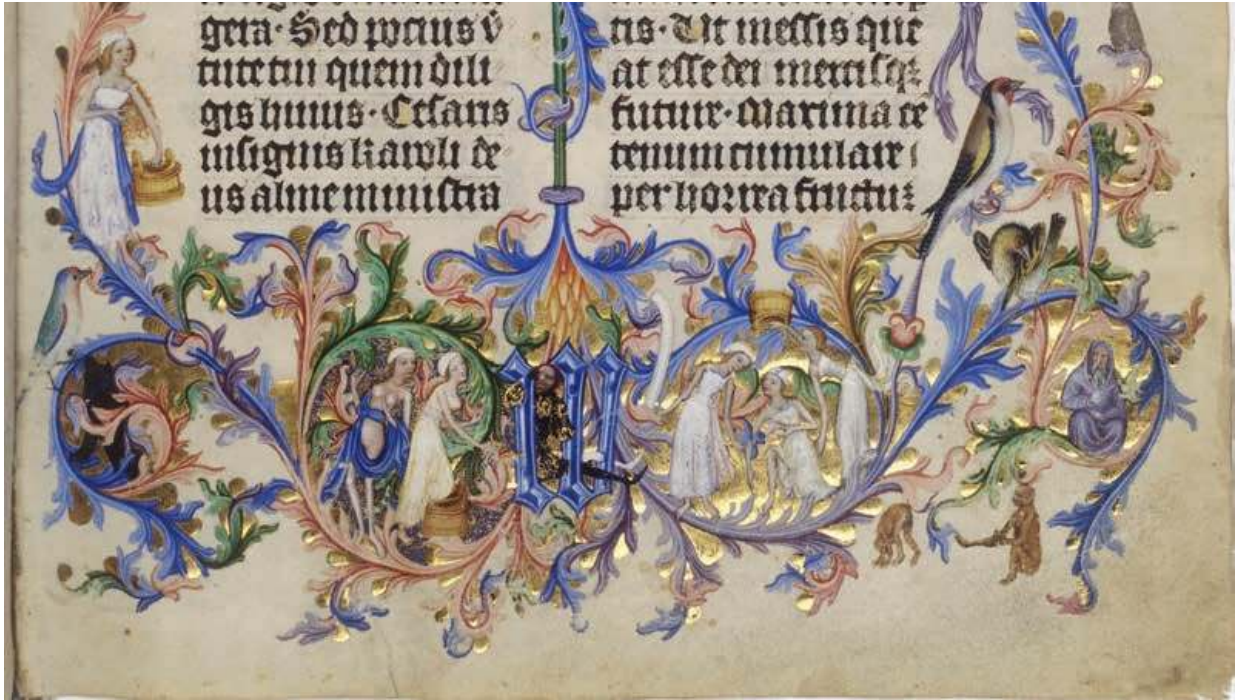 gera· Sed pocius v̄
tute tui quem dili
gis huius· Cesaris
insignis karoli de
us alme ministra
tis· Ut messis que
at esse dei mercisqꝫ
future· Maxima ce
tenum cumulare
per horrea fructuꝫ